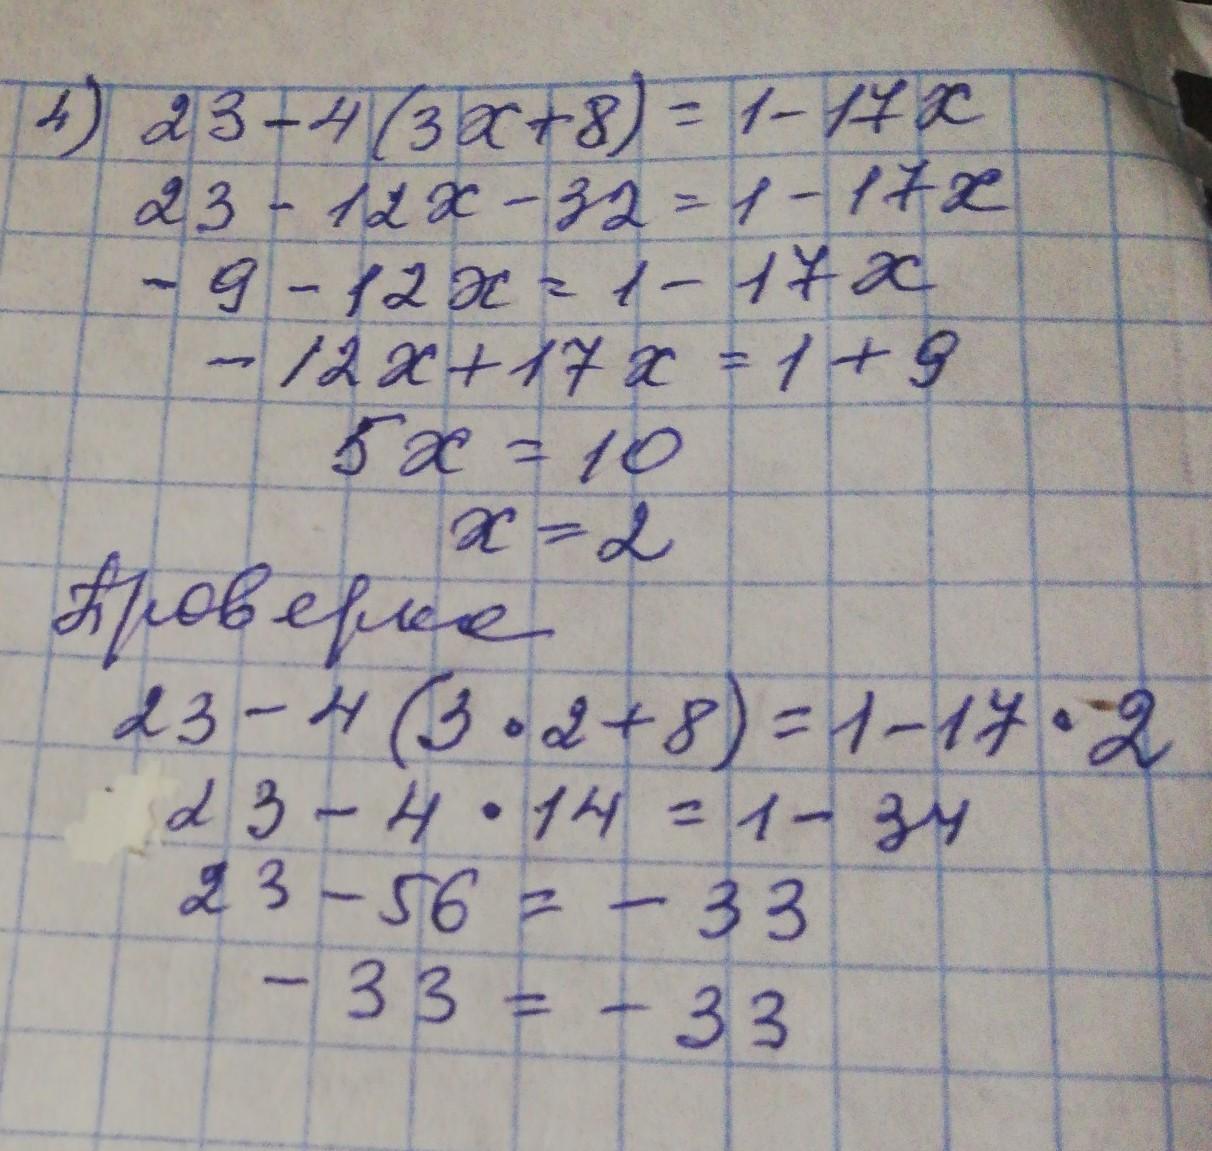 4) 23-4(3x+8)=1-17x
23-12x-32=1-17x
-9-12x=1-17x
-12x+17x=1+9
5x=10
x=2
Проверка
23-4(3·2+8)=1-17·2
23-4·14=1-34
23-56=-33
-33=-33